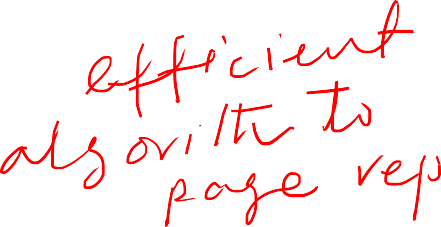 efficient
algorithm to
page rep